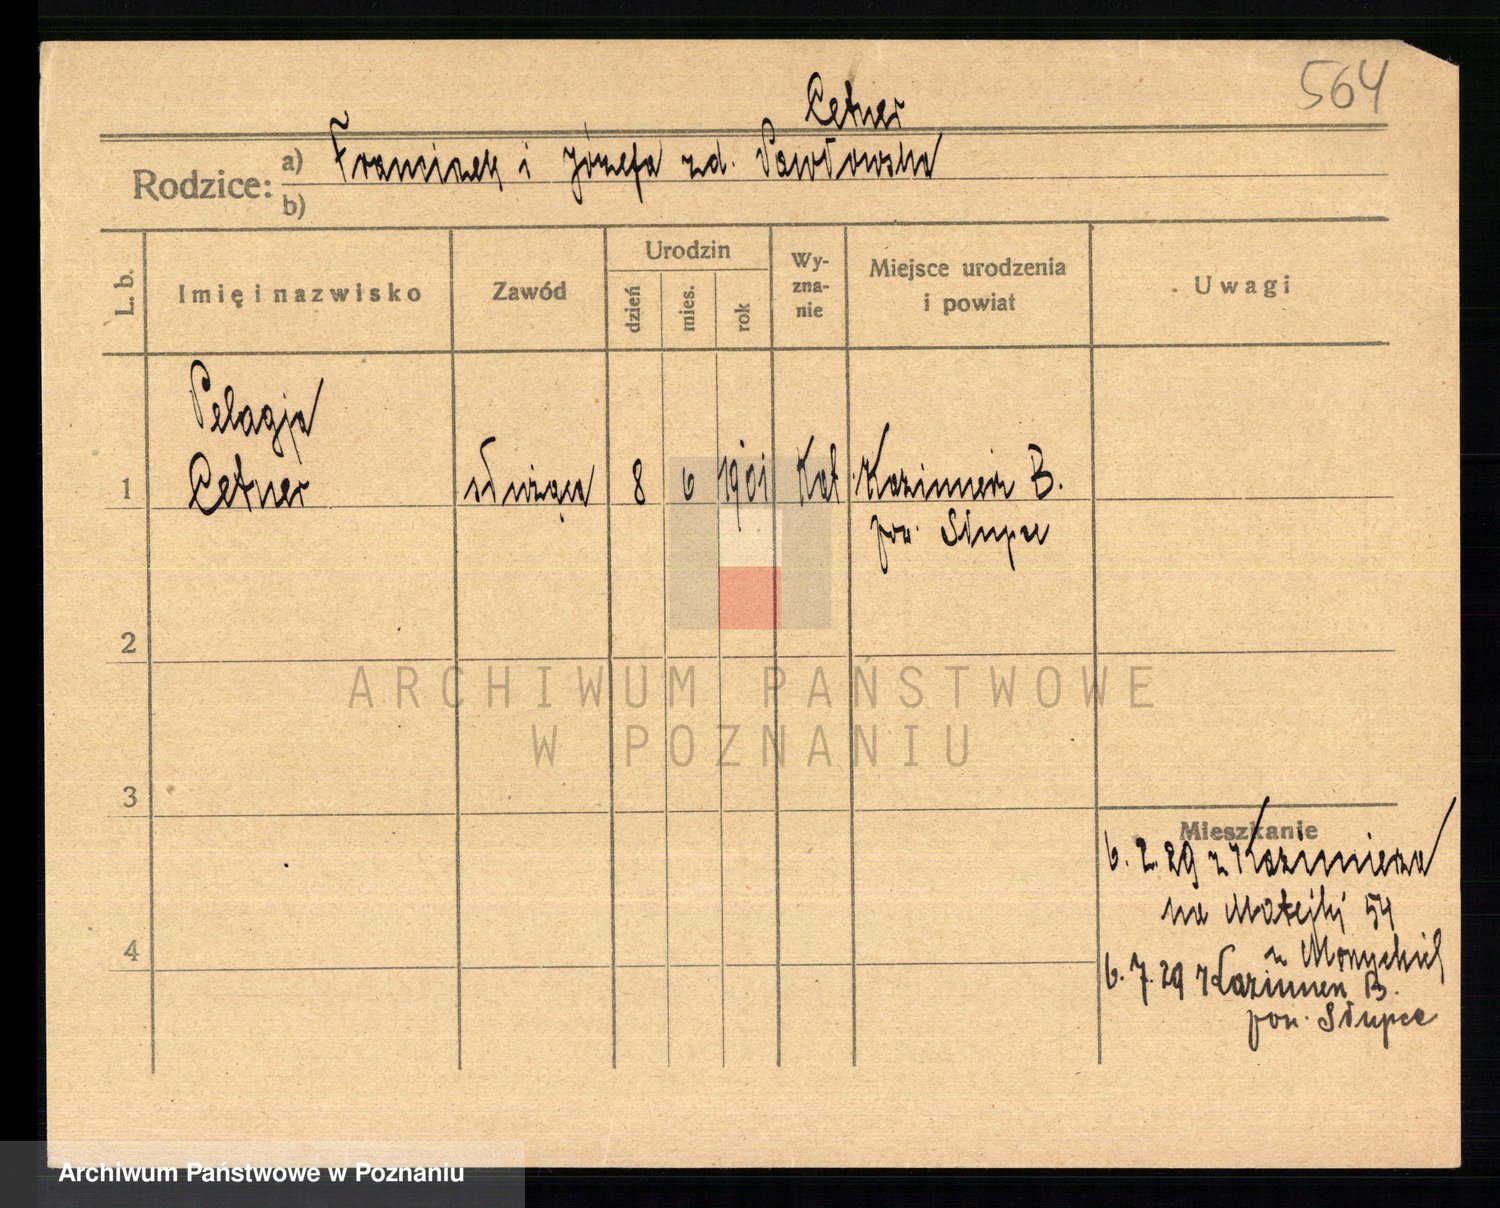 564
Cetner
Rodzice: a) Franciszek i Józefa zd. Pawłowska
b)
L. b.
Imię i nazwisko
Zawód
Urodzin
dzień
mies.
rok
Wy-
zna-
nie
Miejsce urodzenia
i powiat
Uwagi
Pelagja
1 Cetner służąca 8 6 1901 Kat. Kazimierz B.
pow. Słupce
2
ARCHIWUM PAŃSTWOWE
W POZNANIU
3
Mieszkanie
6. 2. 29 z Kazimierza
na Matejki 54
4
6. 7. 29 Kazimierz B.
pow. Słupce
Archiwum Państwowe w Poznaniu